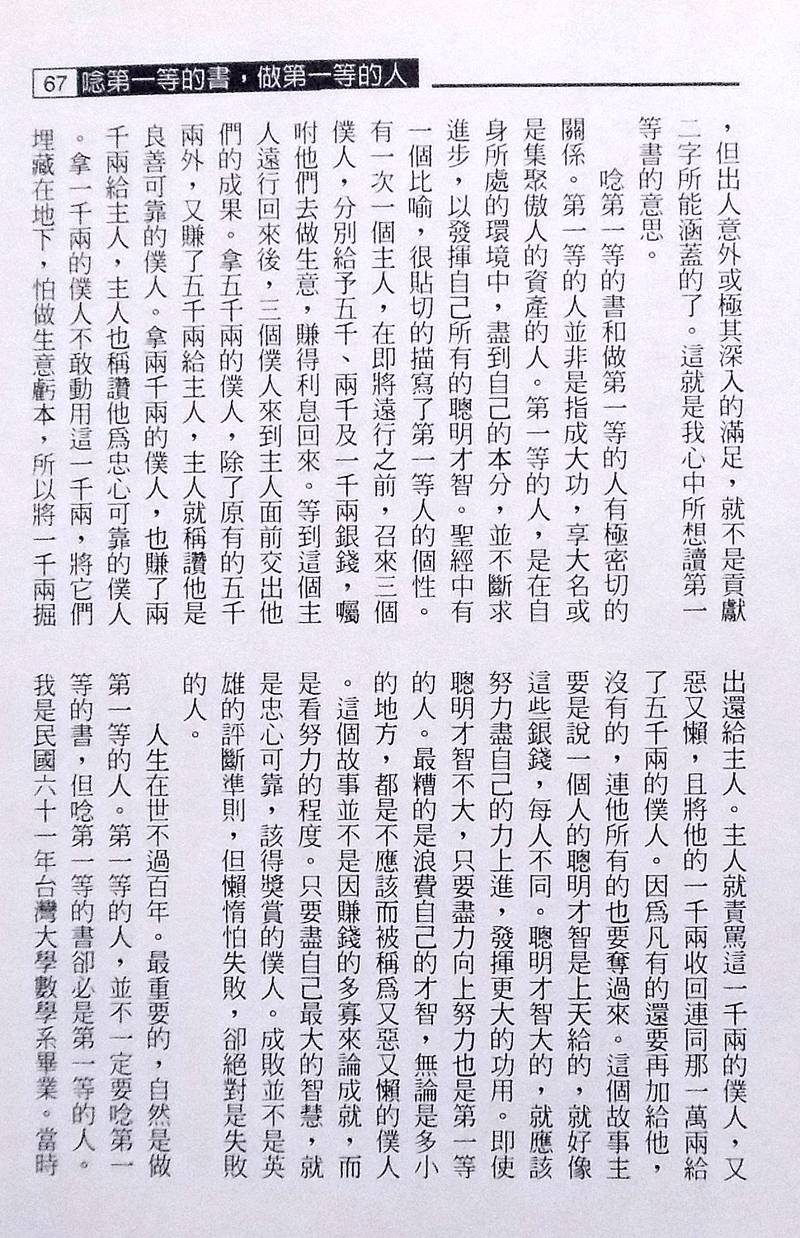 67 唸第一等的書，做第一等的人
，但出人意外或極其深入的滿足，就不是貢獻
二字所能涵蓋的了。這就是我心中所想讀第一
等書的意思。
唸第一等的書和做第一等的人有極密切的
關係。第一等的人並非是指成大功，享大名或
是集聚傲人的資產的人。第一等的人，是在自
身所處的環境中，盡到自己的本分，並不斷求
進步，以發揮自己所有的聰明才智。聖經中有
一個比喻，很貼切的描寫了第一等人的個性。
有一次一個主人，在即將遠行之前，召來三個
僕人，分別給予五千、兩千及一千兩銀錢，囑
咐他們去做生意，賺得利息回來。等到這個主
人遠行回來後，三個僕人來到主人面前交出他
們的成果。拿五千兩的僕人，除了原有的五千
兩外，又賺了五千兩給主人，主人就稱讚他是
良善可靠的僕人。拿兩千兩的僕人，也賺了兩
千兩給主人，主人也稱讚他爲忠心可靠的僕人
。拿一千兩的僕人不敢動用這一千兩，將它們
埋藏在地下，怕做生意虧本，所以將一千兩掘
出還給主人。主人就責罵這一千兩的僕人，又
惡又懶，且將他的一千兩收回連同那一萬兩給
了五千兩的僕人。因爲凡有的還要再加給他，
沒有的，連他所有的也要奪過來。這個故事主
要是說一個人的聰明才智是上天給的，就好像
這些銀錢，每人不同。聰明才智大的，就應該
努力盡自己的力上進，發揮更大的功用。即使
聰明才智不大，只要盡力向上努力也是第一等
的人。最糟的是浪費自己的才智，無論是多小
的地方，都是不應該而被稱爲又惡又懶的僕人
。這個故事並不是因賺錢的多寡來論成就，而
是看努力的程度。只要盡自己最大的智慧，就
是忠心可靠，該得獎賞的僕人。成敗並不是英
雄的評斷準則，但懶惰怕失敗，卻絕對是失敗
的人。
人生在世不過百年。最重要的，自然是做
第一等的人。第一等的人，並不一定要唸第一
等的書，但唸第一等的書卻必是第一等的人。
我是民國六十一年台灣大學數學系畢業。當時